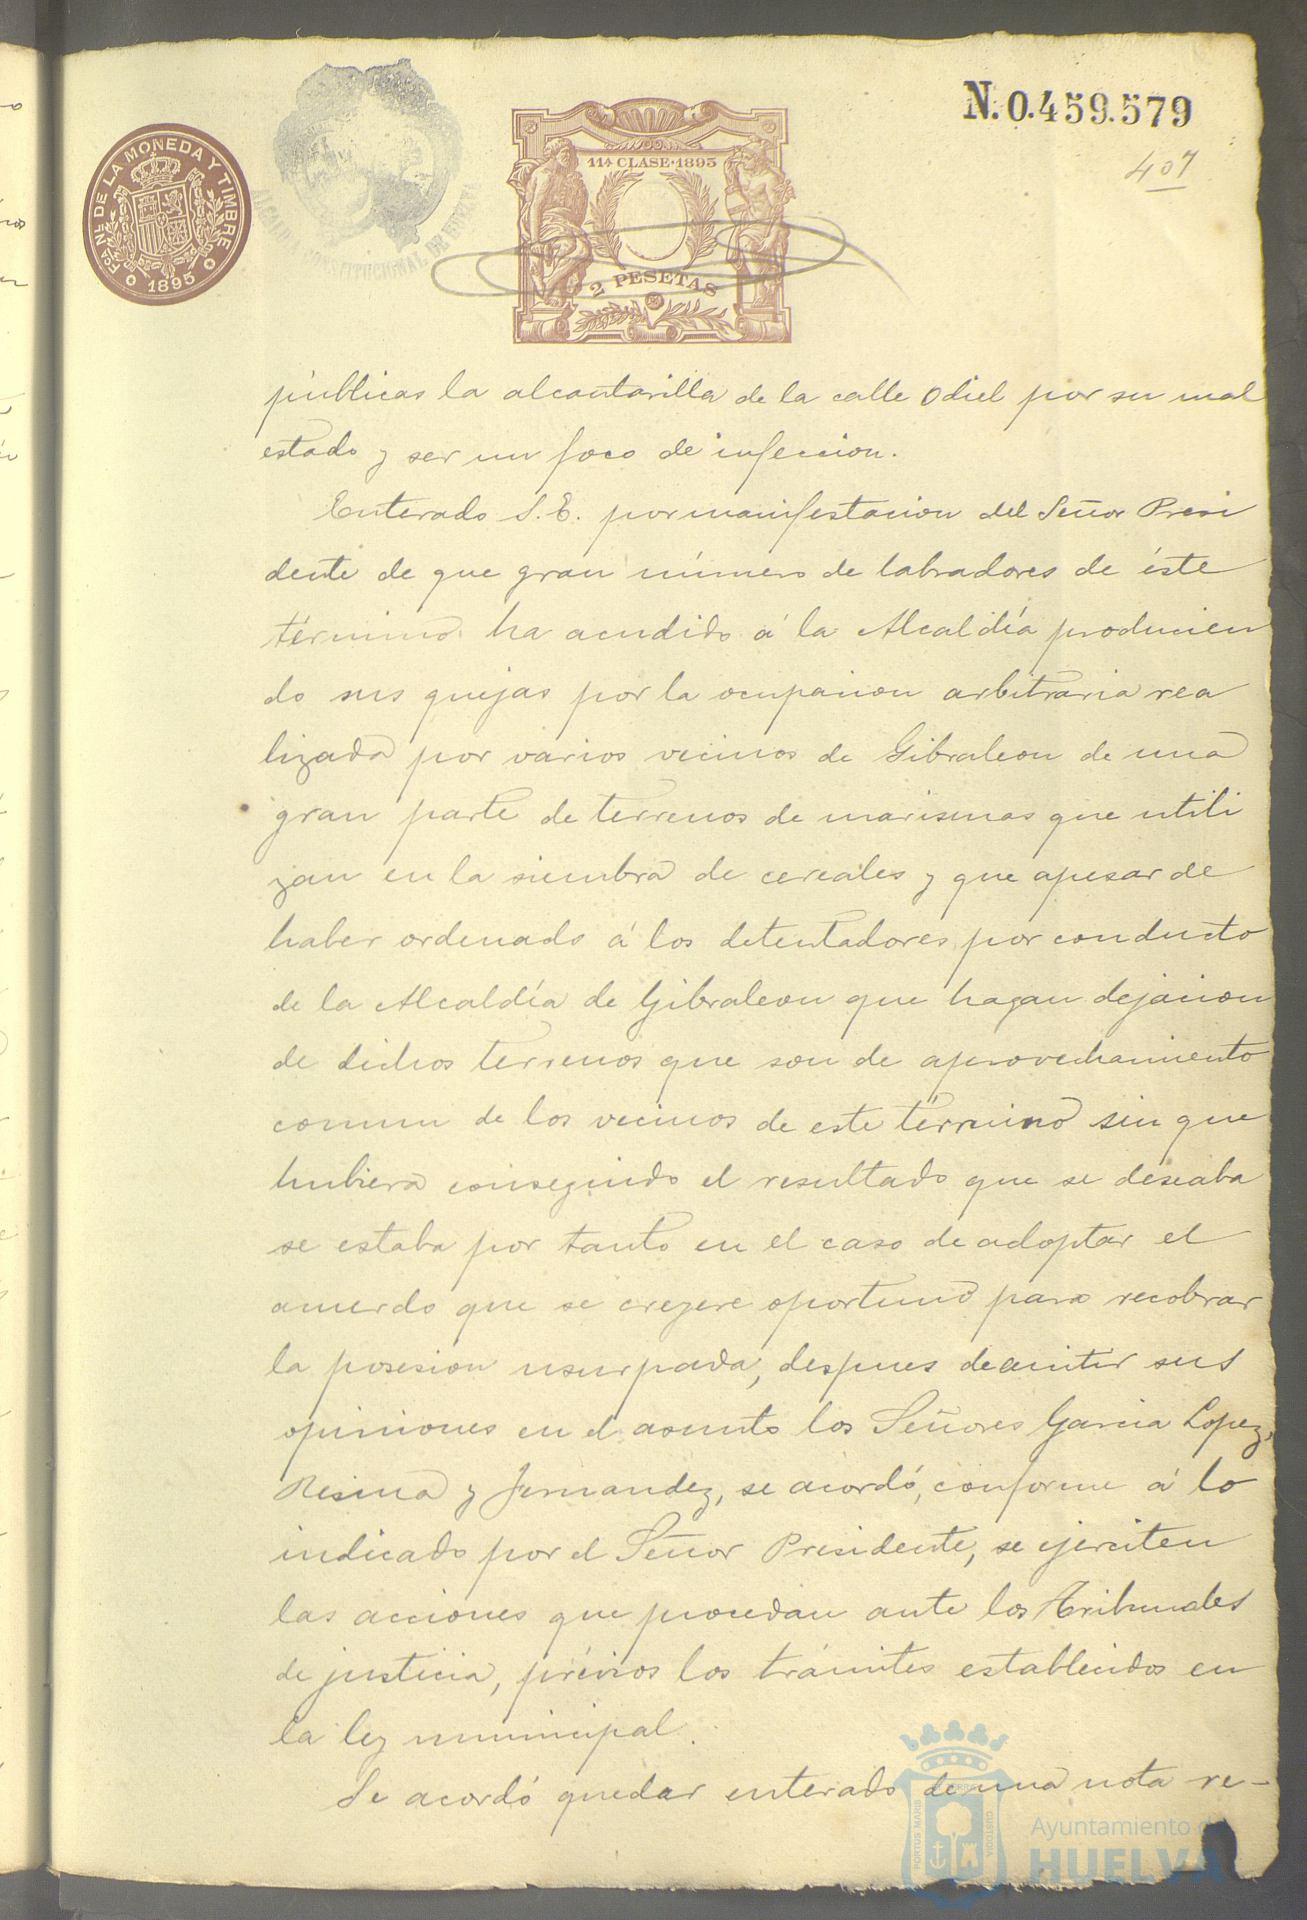 N.0.459.579
407
Fca NL DE LA MONEDA Y TIMBRE
1895
ALCALDIA CONSTITUCIONAL DE HUELVA
11ª CLASE·1895
2 PESETAS
públicas la alcantarilla de la calle Odiel por su mal
estado y ser un foco de infeccion.
Enterado S.E. por manifestacion del Señor Presi
dente de que gran número de labradores de éste
término ha acudido á la Alcaldía producien
do sus quejas por la ocupacion arbitraria rea
lizada por varios vecinos de Gibraleon de una
gran parte de terrenos de marismas que utili
zan en la siembra de cereales y que apesar de
haber ordenado á los detentadores por conducto
de la Alcaldía de Gibraleon que hagan dejacion
de dichos terrenos que son de aprovechamiento
comun de los vecinos de este término sin que
hubiera conseguido el resultado que se deseaba
se estaba por tanto en el caso de adoptar el
acuerdo que se creyere oportuno para recobrar
la posesion usurpada, despues de emitir sus
opiniones en el asunto los Señores Garcia Lopez,
Resina y Fernandez, se acordó, conforme á lo
indicado por el Señor Presidente, se ejerciten
las acciones que procedan ante los Tribunales
de justicia, prévios los trámites establecidos en
la ley municipal.
Se acordó quedar enterado de una nota re-
PORTUS MARIS
ET TERRE
CUSTODIA
Ayuntamiento de
HUELVA